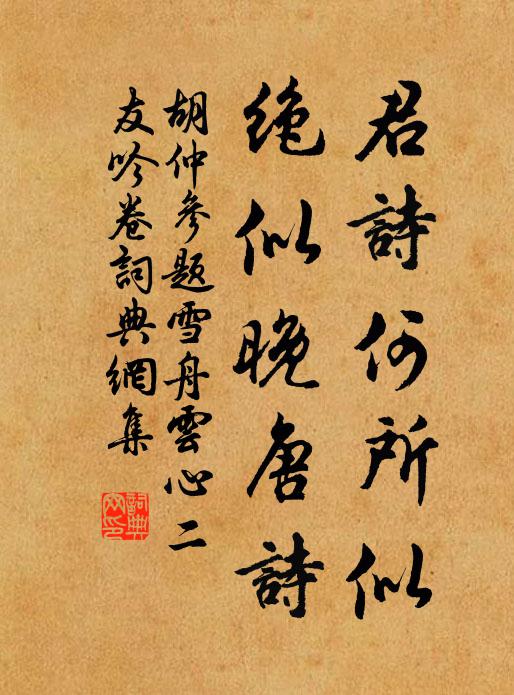 君詩何所似
絶似晚唐詩
胡仲參題雪舟雲心二
友吟卷詞典網集
詞典
网印